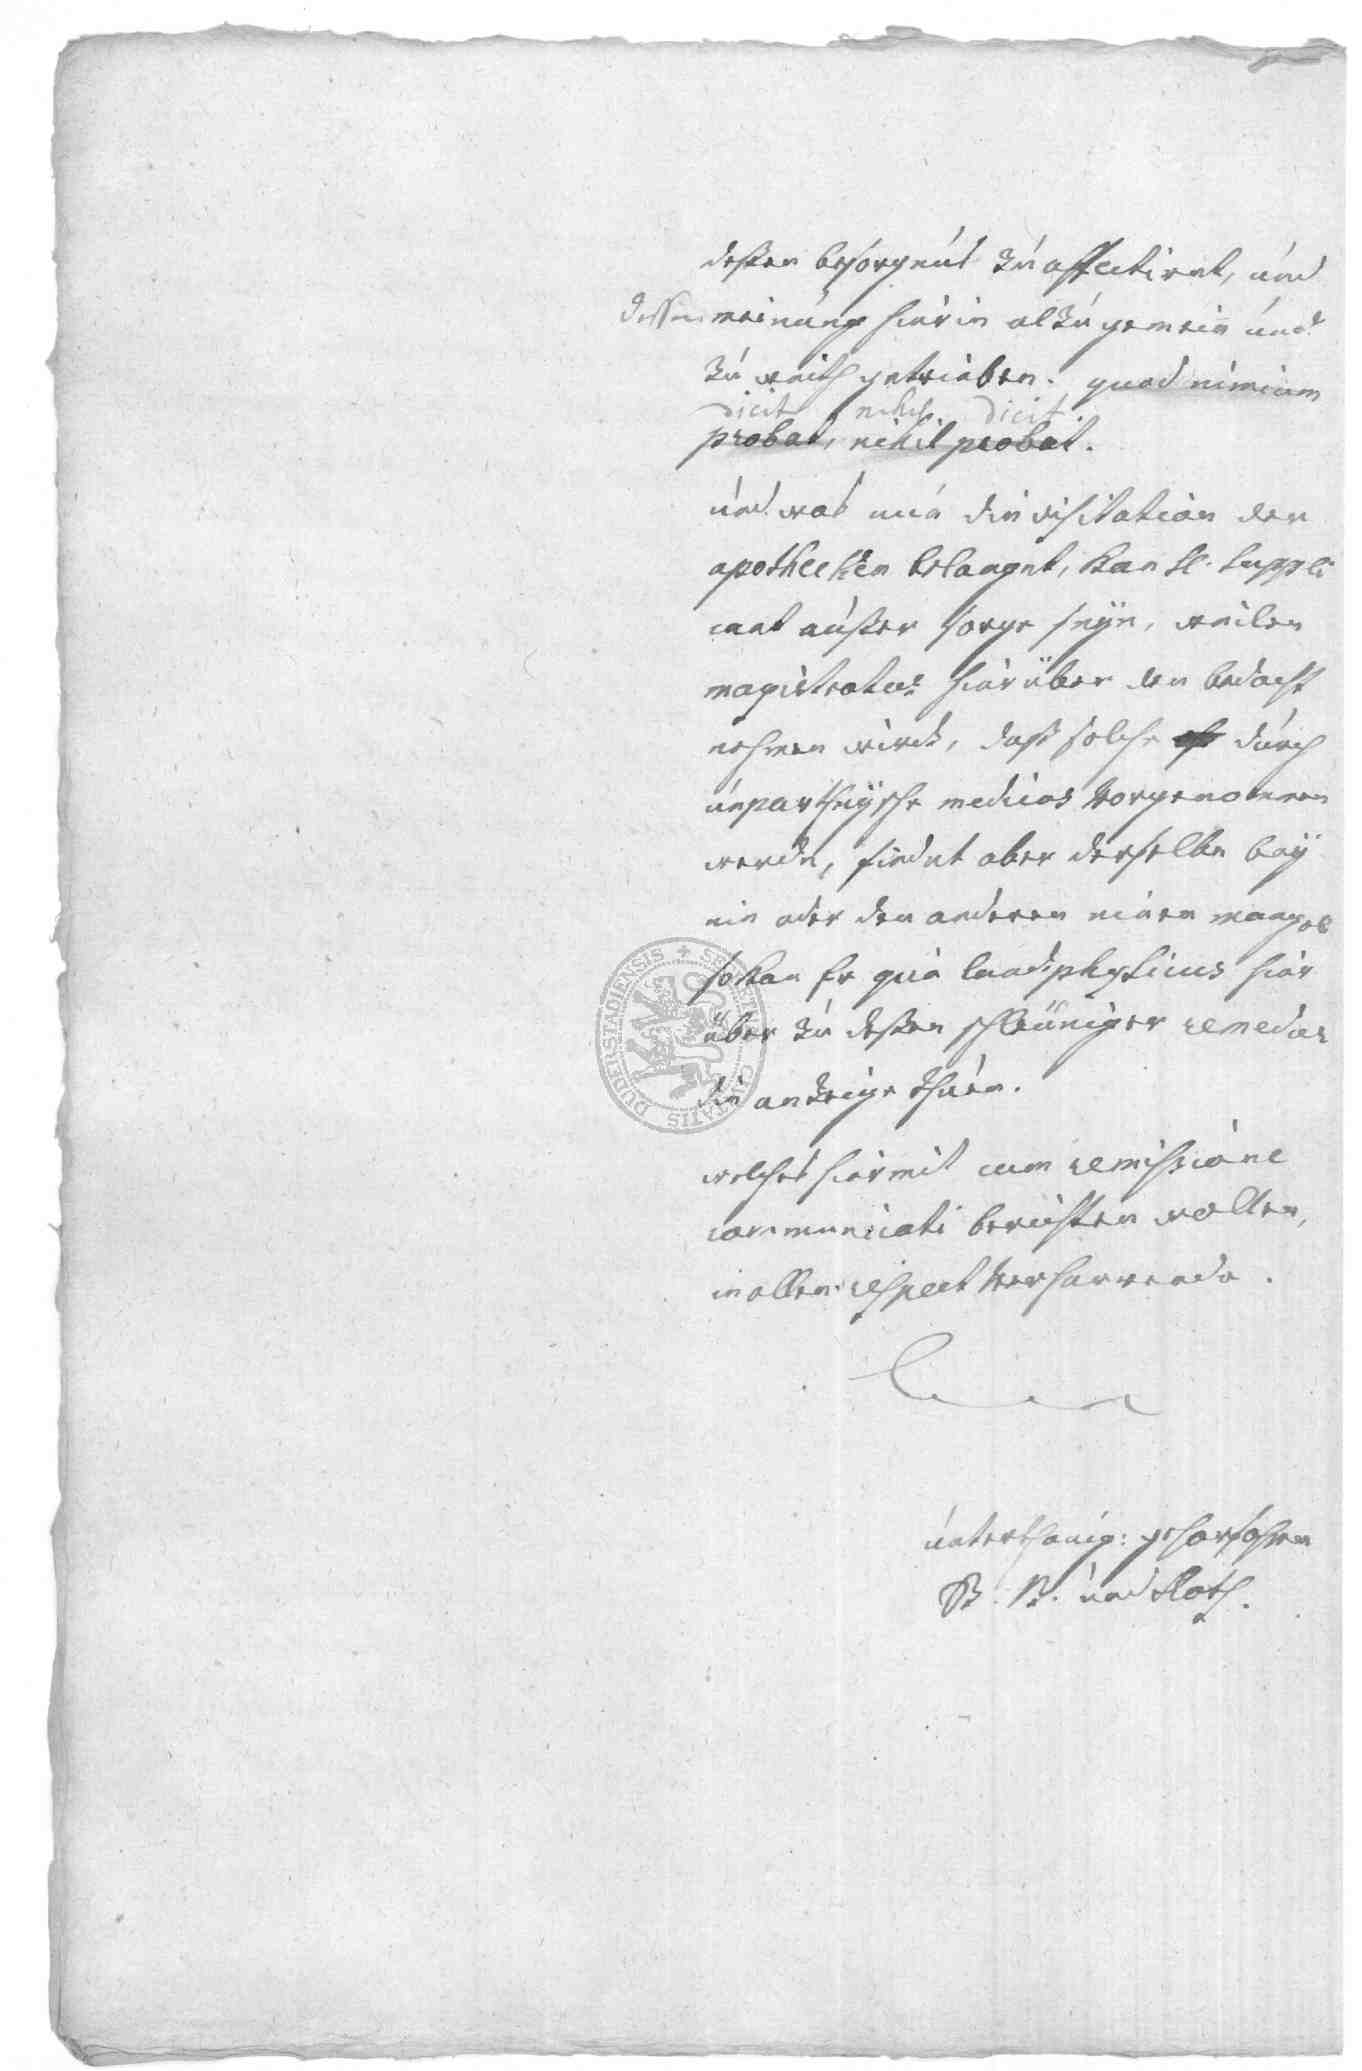 deßen besorgnüs zu affectiret, und
dessen meinung hierin alzu gemein und
zu weith getrieben. quod nimium
dicit nihil dicit
probat, nihil probat.
und was nun die visitation der
apothecken belanget, kan H. Suppli
cant außer sorge seÿn, weilen
magistratus hierüber den bedacht
nehmen wird, daß solche durch
unpartheÿsche medicos vorgenommen
werde, findet aber derselbe beÿ
ein oder den anderen einen mangel
so kan Er qua landphysicus hier
über zu deßen schleüniger remedur
die anzeige thuen.
welches hiermit cum remissione
communicati berichten wollen,
in allem respect verharrende.
unterthänig: gehorsahmen
B. B. und Rath.
SECRETI CIVITATIS DUDERSTADIENSIS